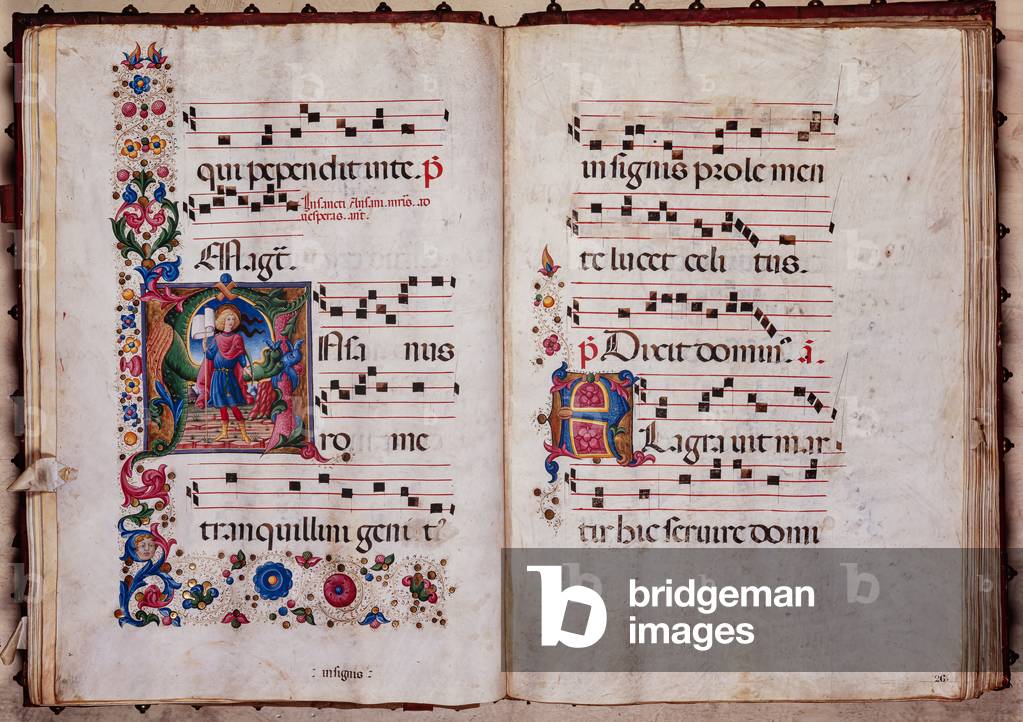 qui pependit in te. p̄
In sancti Ansani. mr̄is. ad
uesperas. ant.
Magt̄.
Ansanus
ro me
tranquillini genit
: insignis :
insignis prole men
te lucet celitus.
p̄ Dixit domin. a̅.
Flagrauit mar
tir hic seruire domi
26
bridgeman
images